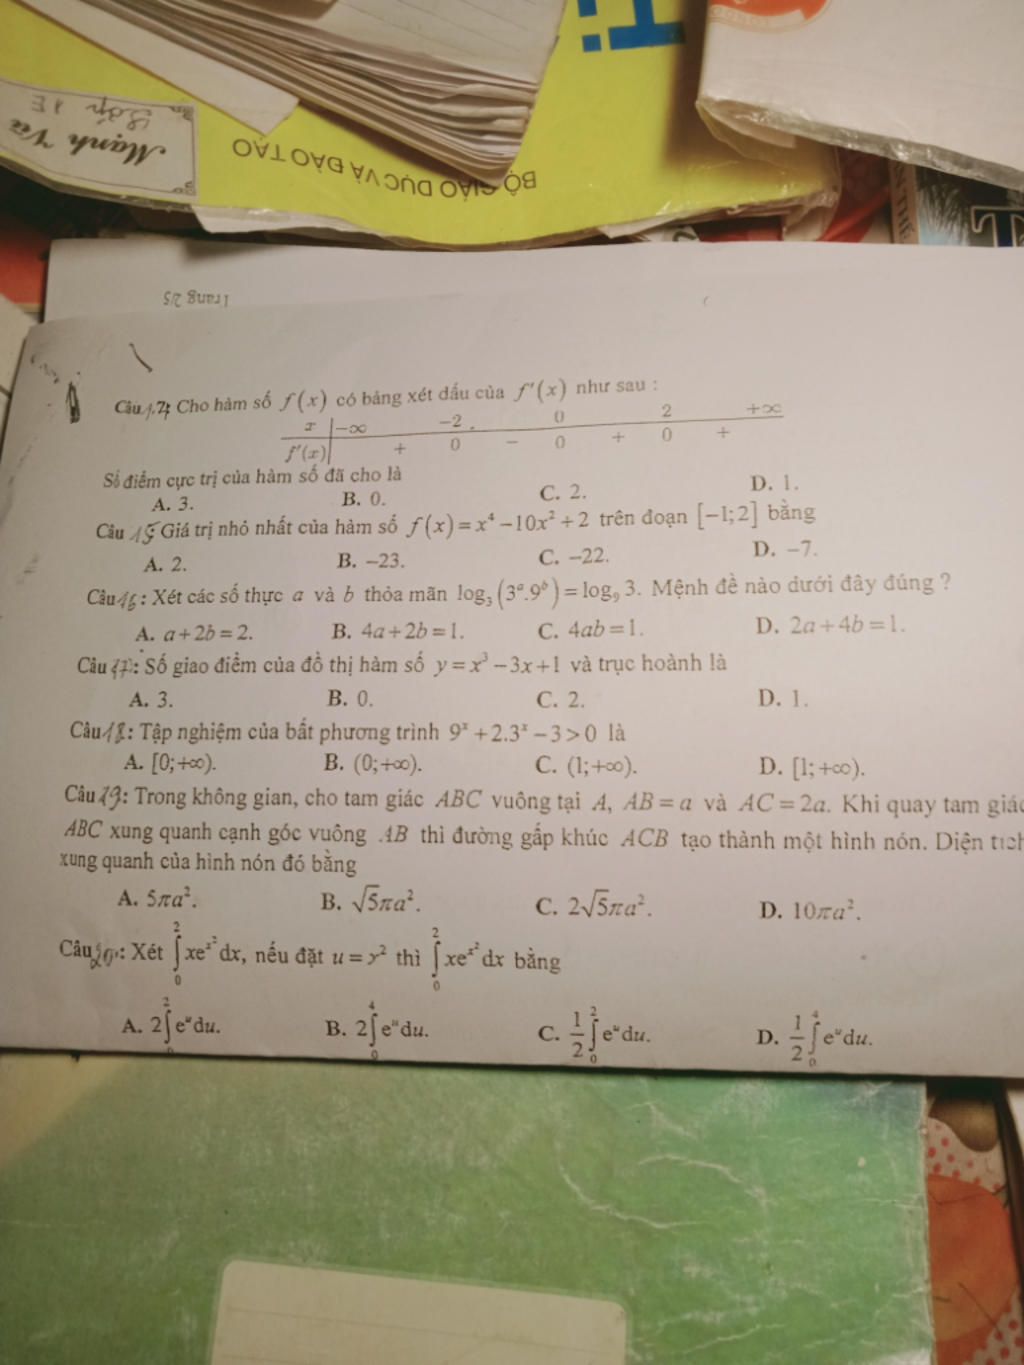 Mạnh Vũ
Lớp 1E
BỘ GIÁO DỤC VÀ ĐÀO TẠO
Trang 2/5
Cho hàm số f(x) có bảng xét dấu của f'(x) như sau :
x −∞ −2 0 2 +∞
f'(x) + 0 − 0 + 0 +
Số điểm cực trị của hàm số đã cho là
A. 3. B. 0. C. 2. D. 1.
Câu 15 Giá trị nhỏ nhất của hàm số f(x) = x⁴ −10x² + 2 trên đoạn [−1;2] bằng
A. 2. B. −23. C. −22. D. −7.
Câu 16: Xét các số thực a và b thỏa mãn log₃(3ᵃ.9ᵇ) = log₉ 3. Mệnh đề nào dưới đây đúng ?
A. a + 2b = 2. B. 4a + 2b = 1. C. 4ab = 1. D. 2a + 4b = 1.
Câu 17: Số giao điểm của đồ thị hàm số y = x³ − 3x + 1 và trục hoành là
A. 3. B. 0. C. 2. D. 1.
Câu 18: Tập nghiệm của bất phương trình 9ˣ + 2.3ˣ − 3 > 0 là
A. [0;+∞). B. (0;+∞). C. (1;+∞). D. [1;+∞).
Câu 19: Trong không gian, cho tam giác ABC vuông tại A, AB = a và AC = 2a. Khi quay tam giác
ABC xung quanh cạnh góc vuông AB thì đường gấp khúc ACB tạo thành một hình nón. Diện tích
xung quanh của hình nón đó bằng
A. 5πa². B. √5πa². C. 2√5πa². D. 10πa².
Câu 20: Xét ∫₀² xe^(x²) dx, nếu đặt u = x² thì ∫₀² xe^(x²) dx bằng
A. 2∫₀² eᵘdu. B. 2∫₀⁴ eᵘdu. C. 1/2 ∫₀² eᵘdu. D. 1/2 ∫₀⁴ eᵘdu.